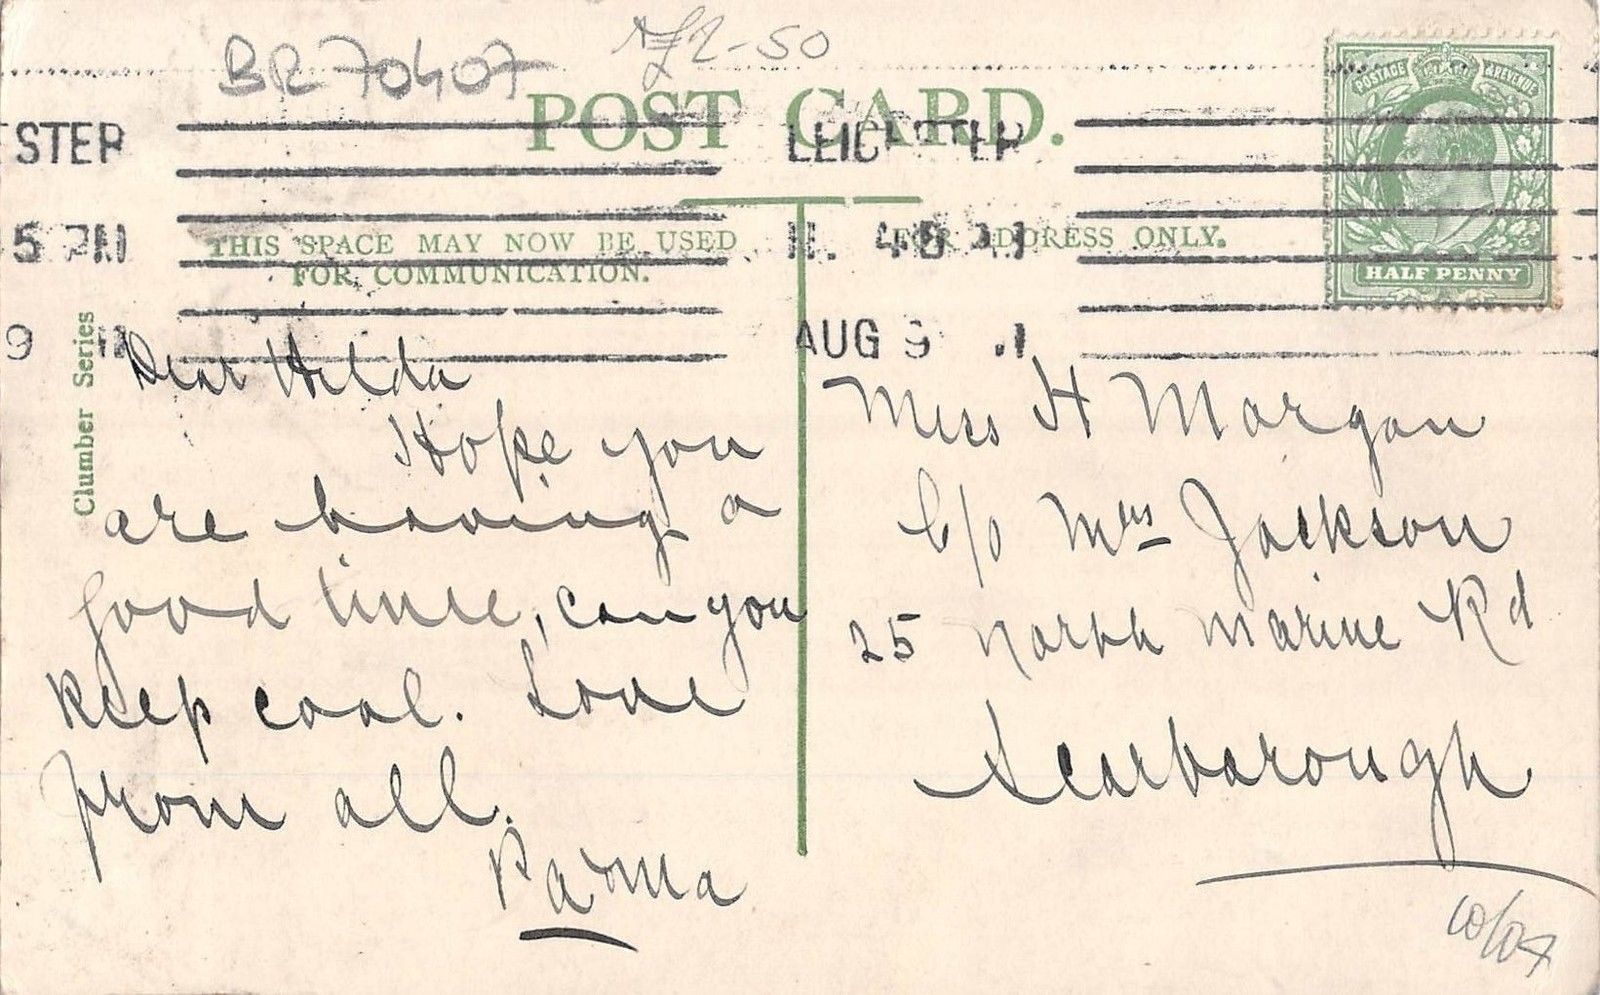 BR 70407
£2-50
POST CARD.
POSTAGE & REVENUE
HALF PENNY
STER
LEICESTER
5 PM
AUG 9
THIS SPACE MAY NOW BE USED
FOR COMMUNICATION.
FOR ADDRESS ONLY.
Clumber Series
Dear Hilda
Hope you
are having a
good time, can you
keep cool. Love
from all.
Miss H Morgan
C/o Mrs Jackson
25 North Marine Rd
Scarborough
10/07